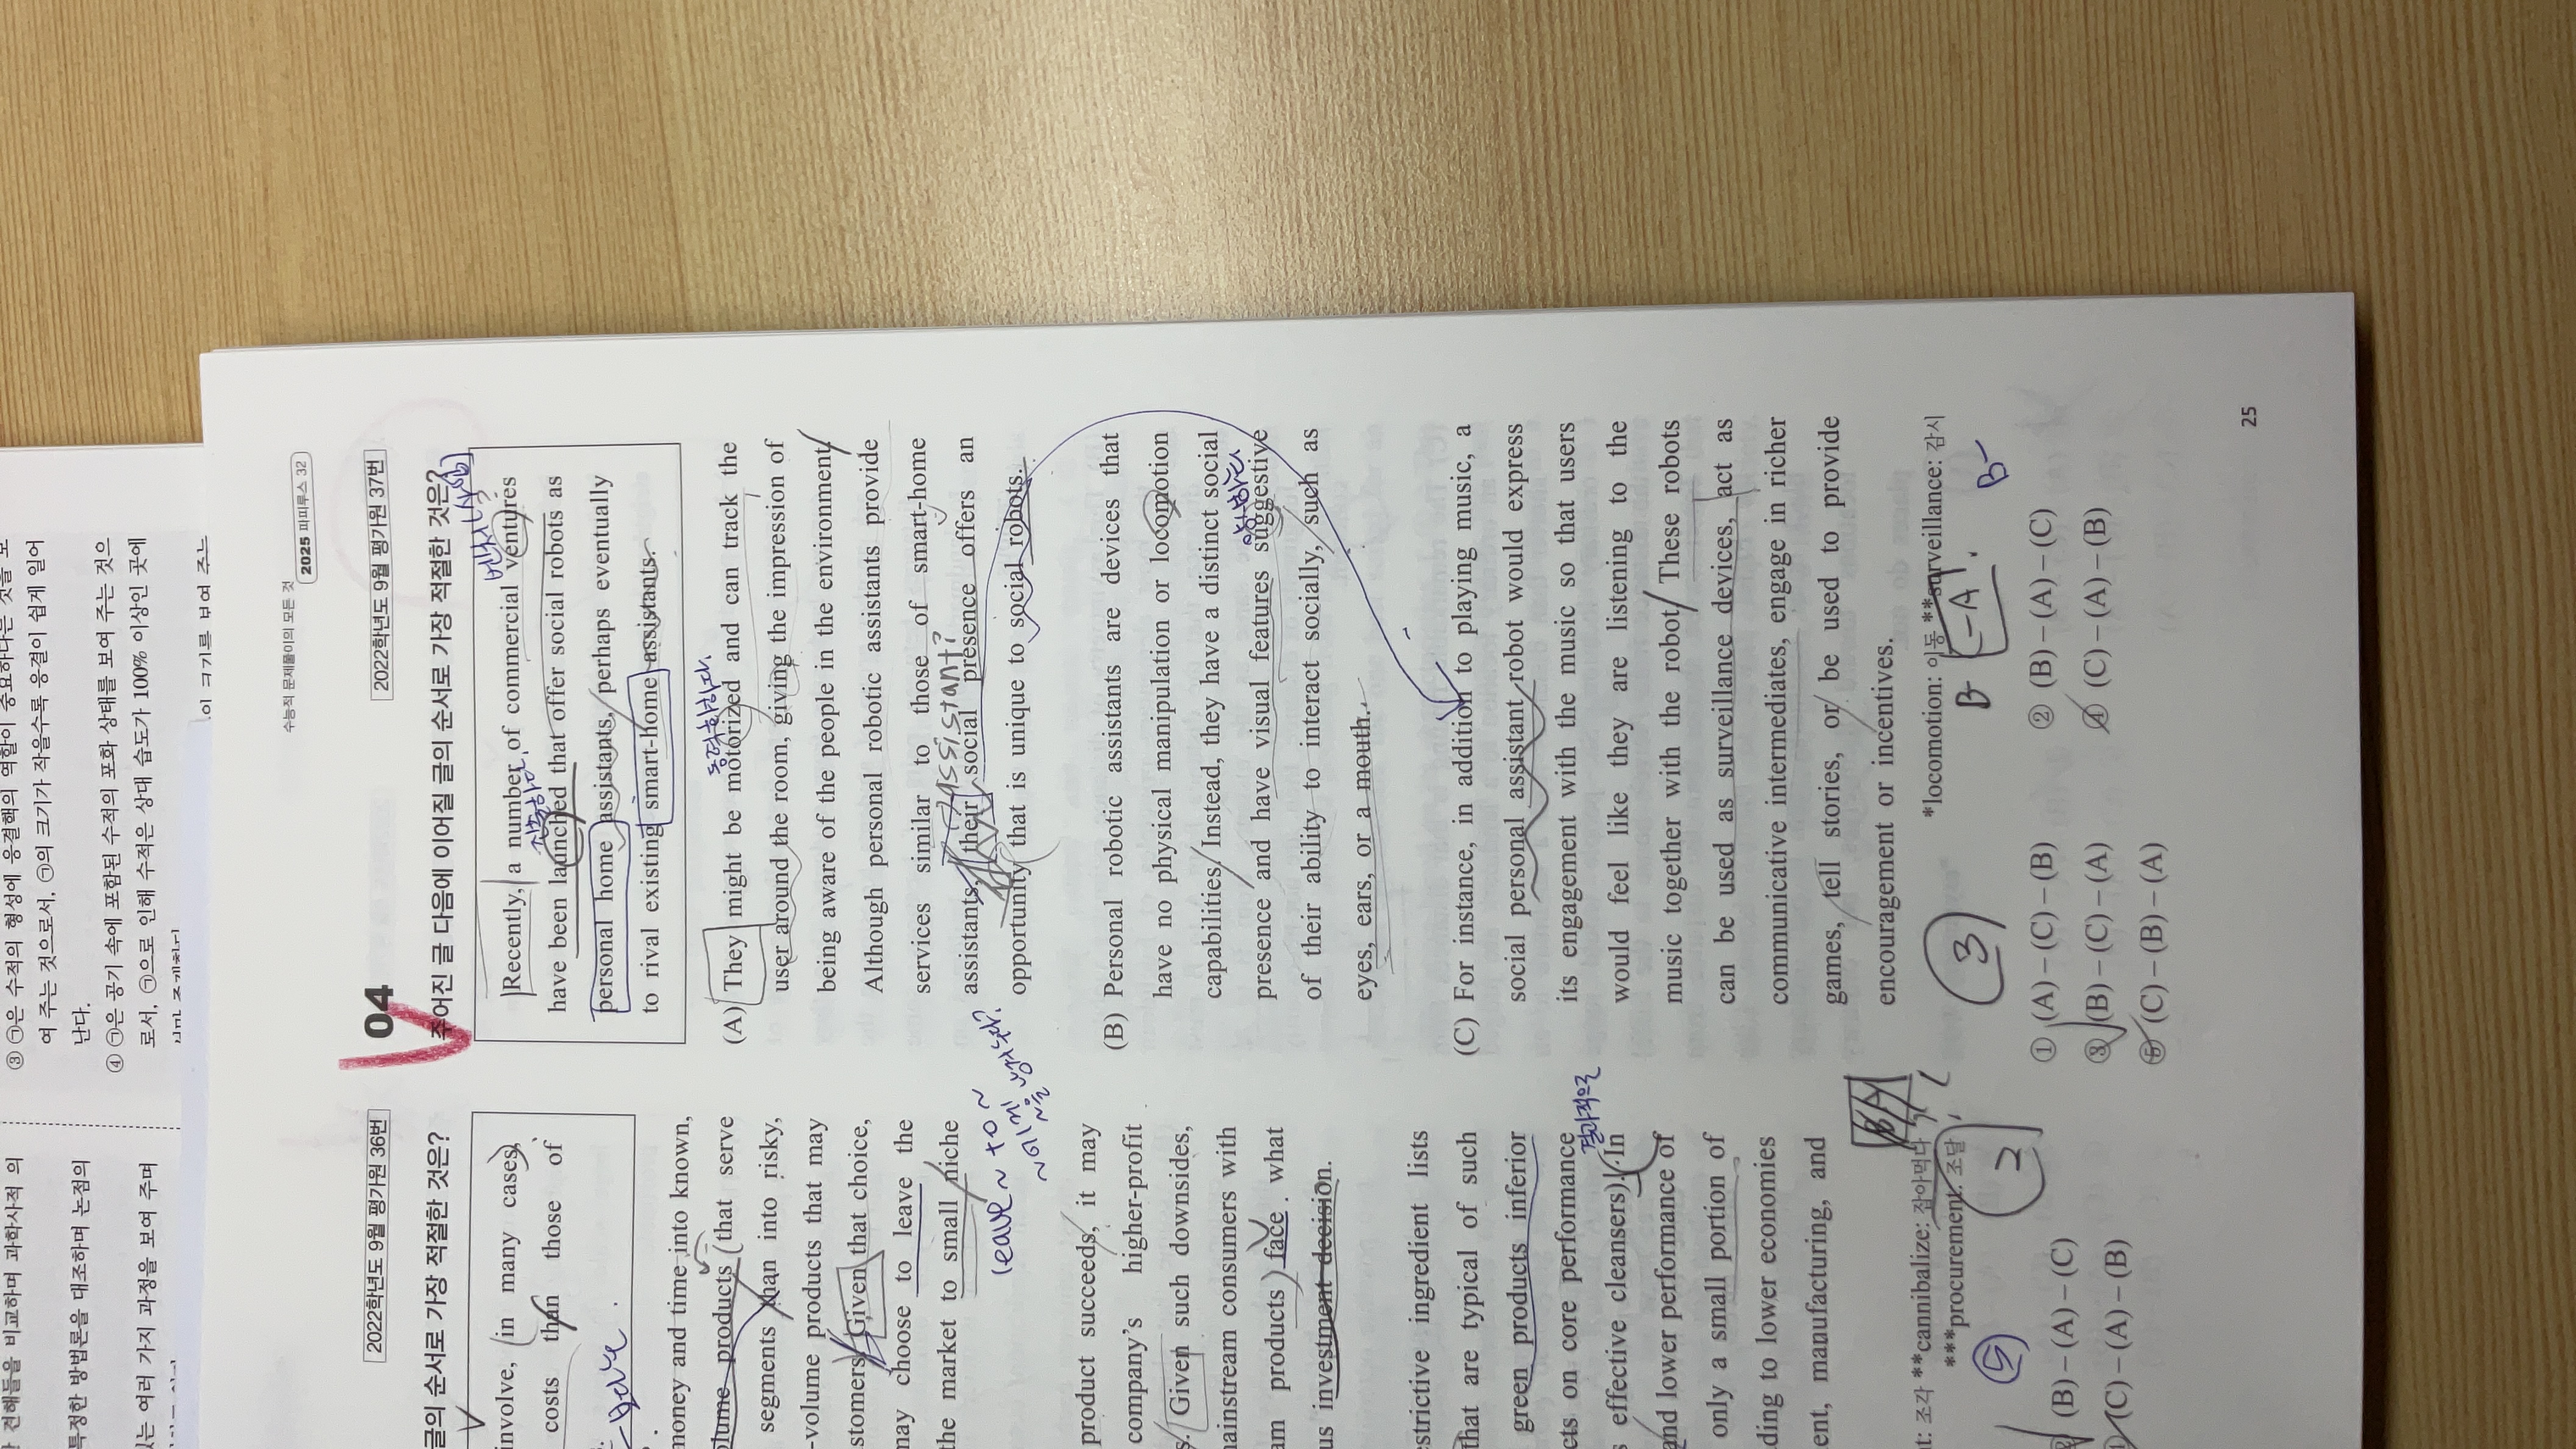 ③ ㉠은 수적의 형성에 응결핵의 역할이 중요하다는 것을 보
여 주는 것으로서, ㉠의 크기가 작을수록 응결이 쉽게 일어
난다.
④ ㉠은 공기 속에 포함된 수적의 포화 상태를 보여 주는 것으
로서, ㉠으로 인해 수적은 상대 습도가 100% 이상인 곳에
견해들을 비교하며 과학사적 의
특정한 방법론을 대조하며 논점의
있는 여러 가지 과정을 보여 주며
2022학년도 9월 평가원 36번
글의 순서로 가장 적절한 것은?
involve, in many cases,
costs than those of
money and time into known,
products that serve
segments than into risky,
-volume products that may
Given that choice,
may choose to leave the
the market to small niche
leave ~ to ~
product succeeds, it may
company's higher-profit
Given such downsides,
mainstream consumers with
products) face what
investment decision.
restrictive ingredient lists
that are typical of such
green products inferior
on core performance
결과적으로
effective cleansers). In
and lower performance of
only a small portion of
lower economies
manufacturing, and
조각 **cannibalize: 잡아먹다
***procurement: 조달
2
⑤
(B)-(A)-(C)
(C)-(A)-(B)
수능국어 문제풀이의 모든 것
2025 파피루스 32
04
2022학년도 9월 평가원 37번
주어진 글 다음에 이어질 글의 순서로 가장 적절한 것은?
Recently, a number of commercial ventures
have been launched that offer social robots as
personal home assistants, perhaps eventually
to rival existing smart-home assistants.
(A) They might be motorized and can track the
user around the room, giving the impression of
being aware of the people in the environment.
Although personal robotic assistants provide
services similar to those of smart-home
assistants, their social presence offers an
opportunity that is unique to social robots.
(B) Personal robotic assistants are devices that
have no physical manipulation or locomotion
capabilities. Instead, they have a distinct social
presence and have visual features suggestive
of their ability to interact socially, such as
eyes, ears, or a mouth.
(C) For instance, in addition to playing music, a
social personal assistant robot would express
its engagement with the music so that users
would feel like they are listening to the
music together with the robot. These robots
can be used as surveillance devices, act as
communicative intermediates, engage in richer
games, tell stories, or be used to provide
encouragement or incentives.
*locomotion: 이동 **surveillance: 감시
B-A
B-
3
① (A)-(C)-(B) ② (B)-(A)-(C)
③ (B)-(C)-(A) ④ (C)-(A)-(B)
⑤ (C)-(B)-(A)
25